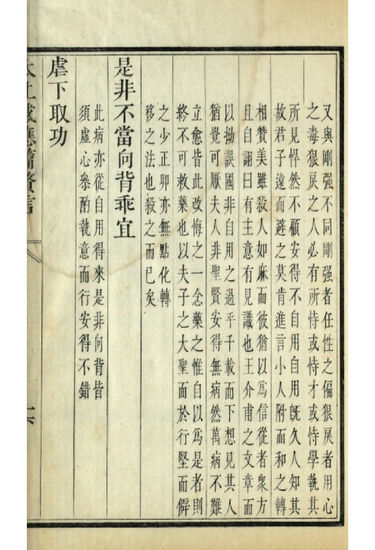 又與剛强不同剛强者任性之偏狠戾者用心
之毒狠戾之人必有所恃或恃才或恃學執其
所見悍然不顧安得不自用自用旣久人知其
故君子遠而避之莫肯進言小人附而和之轉
相贊美雖殺人如麻而彼猶以爲信從者衆方
且自詡曰有主意有見識也王介甫之文章而
以拗誤國非自用之過乎千載而下想見其人
猶覺可厭夫人非聖賢安得無病然萬病不難
立愈皆此改悔之一念藥之惟自以爲是者則
終不可救藥也以夫子之大聖而於行堅而僻
之少正卯亦無點化轉
移之法也殺之而已矣
是非不當向背乖宜
此病亦從自用得來是非向背皆
須虛心叅酌執意而行安得不錯
虐下取功
太上感應篇贅言